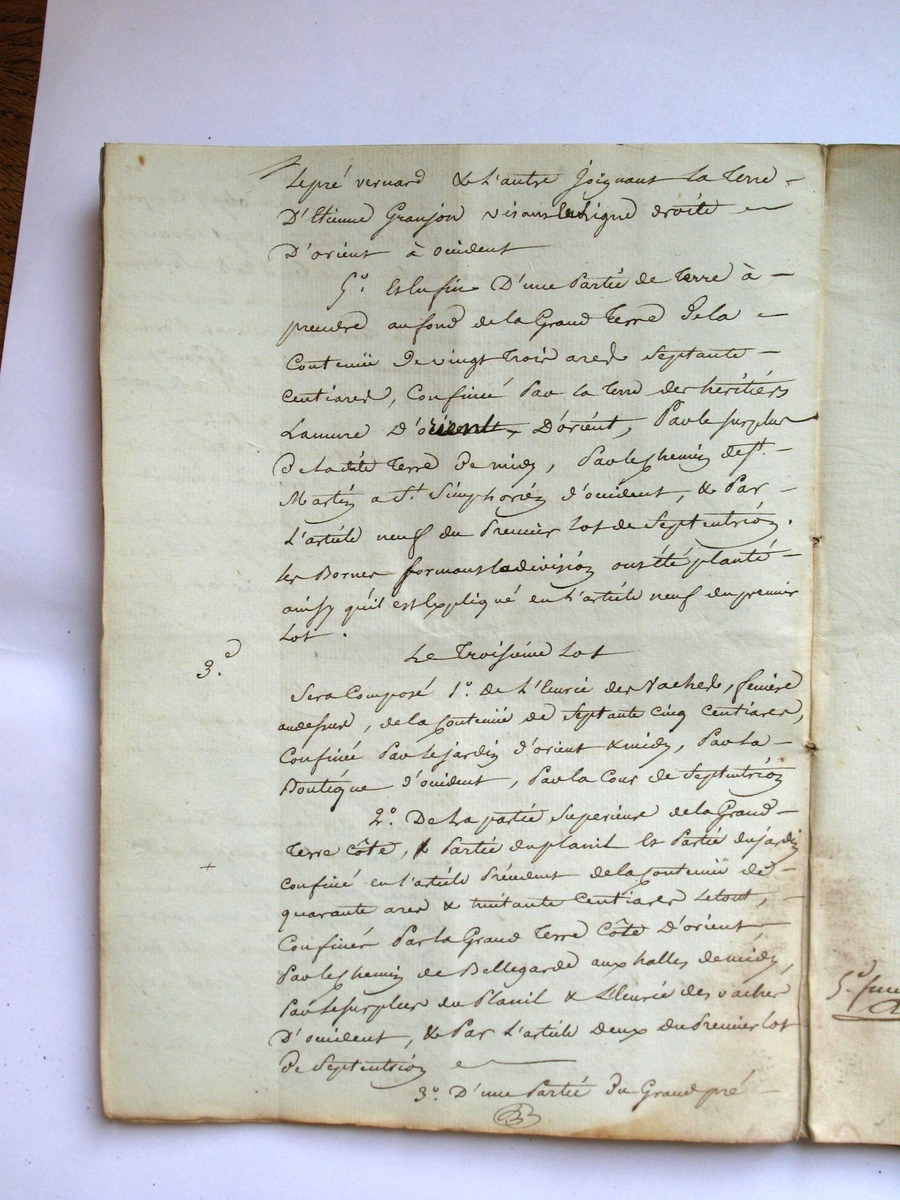 le pré vernard & L'autre Joignant la Terre
D'Etienne Granjon visant la Ligne droite
D'orient à occident
5°. Et Enfin D'une Partie de Terre à
prendre au fond de la Grand Terre De la
Contenüe De vingt Trois ares Septante
Centiares, Confinée Par la Terre des heritiers
Lamure D'orient, D'orient, Par le surplus
De la ditte Terre De midy, Par le Chemin de St.
Martin a St. Simphorien d'occident, & Par
L'article neuf du Premier Lot de Septentrion.
les Bornes formants la division ont été planté
ainsy qu'il est Expliqué en L'article neuf du premier
Lot.
3.e
Le Troisieme Lot
Sera Composé 1°. de L'Eeurie des Vaches, feniere
audessus, de la Contenüe de Septante Cinq Centiares,
Confinée Par le jardin d'orient & midy, Par La
Boutique d'occident, Par la Cour de Septentrion
2°. De La partie Superieure de la Grand
Terre Côte, & Partie du planil Et Partie du jardin
+
Confiné en l'article Précédent de la Contenüe de
quarante ares & trentante Centiares Letout,
Confinés Par la Grand Terre Côte D'orient
Par le Chemin de Bellegarde aux halles de midy,
Par Le surplus du Planil & L'Eeurie des vaches
D'occident, & Par L'article Deux Du Premier lot
De Septentrion
3°. D'une Partie Du Grand pré